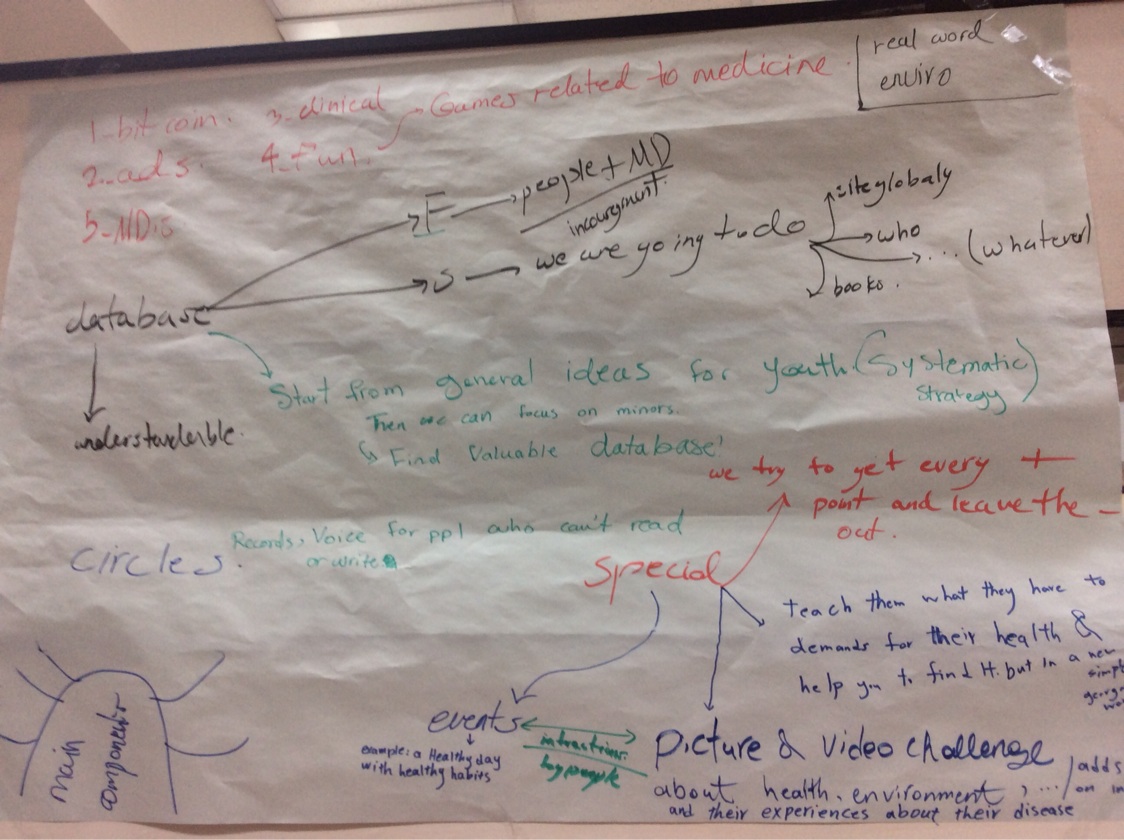 real word
enviro
1-bitcoin. 3-clinical
Games related to medicine
2-ads. 4-fun.
5-MD.s
F
people + MD
incouregment.
S
we are going to do
site globaly
who
... (whatever)
books.
database
understandeble.
Start from general ideas for youth. (Systematic)
Strategy
Then we can focus on minors.
Find Valuable database!
we try to get every +
point and leave the -
out.
Circles.
Records, Voice for ppl who can't read
or write
Special
teach them what they have to
demands for their health &
help you to find it. but in a new
main
components
events
example: a Healthy day
with healthy habits
by people
Picture & Video challenge
about health, environment, ...
adds
on in
and their experiences about their disease